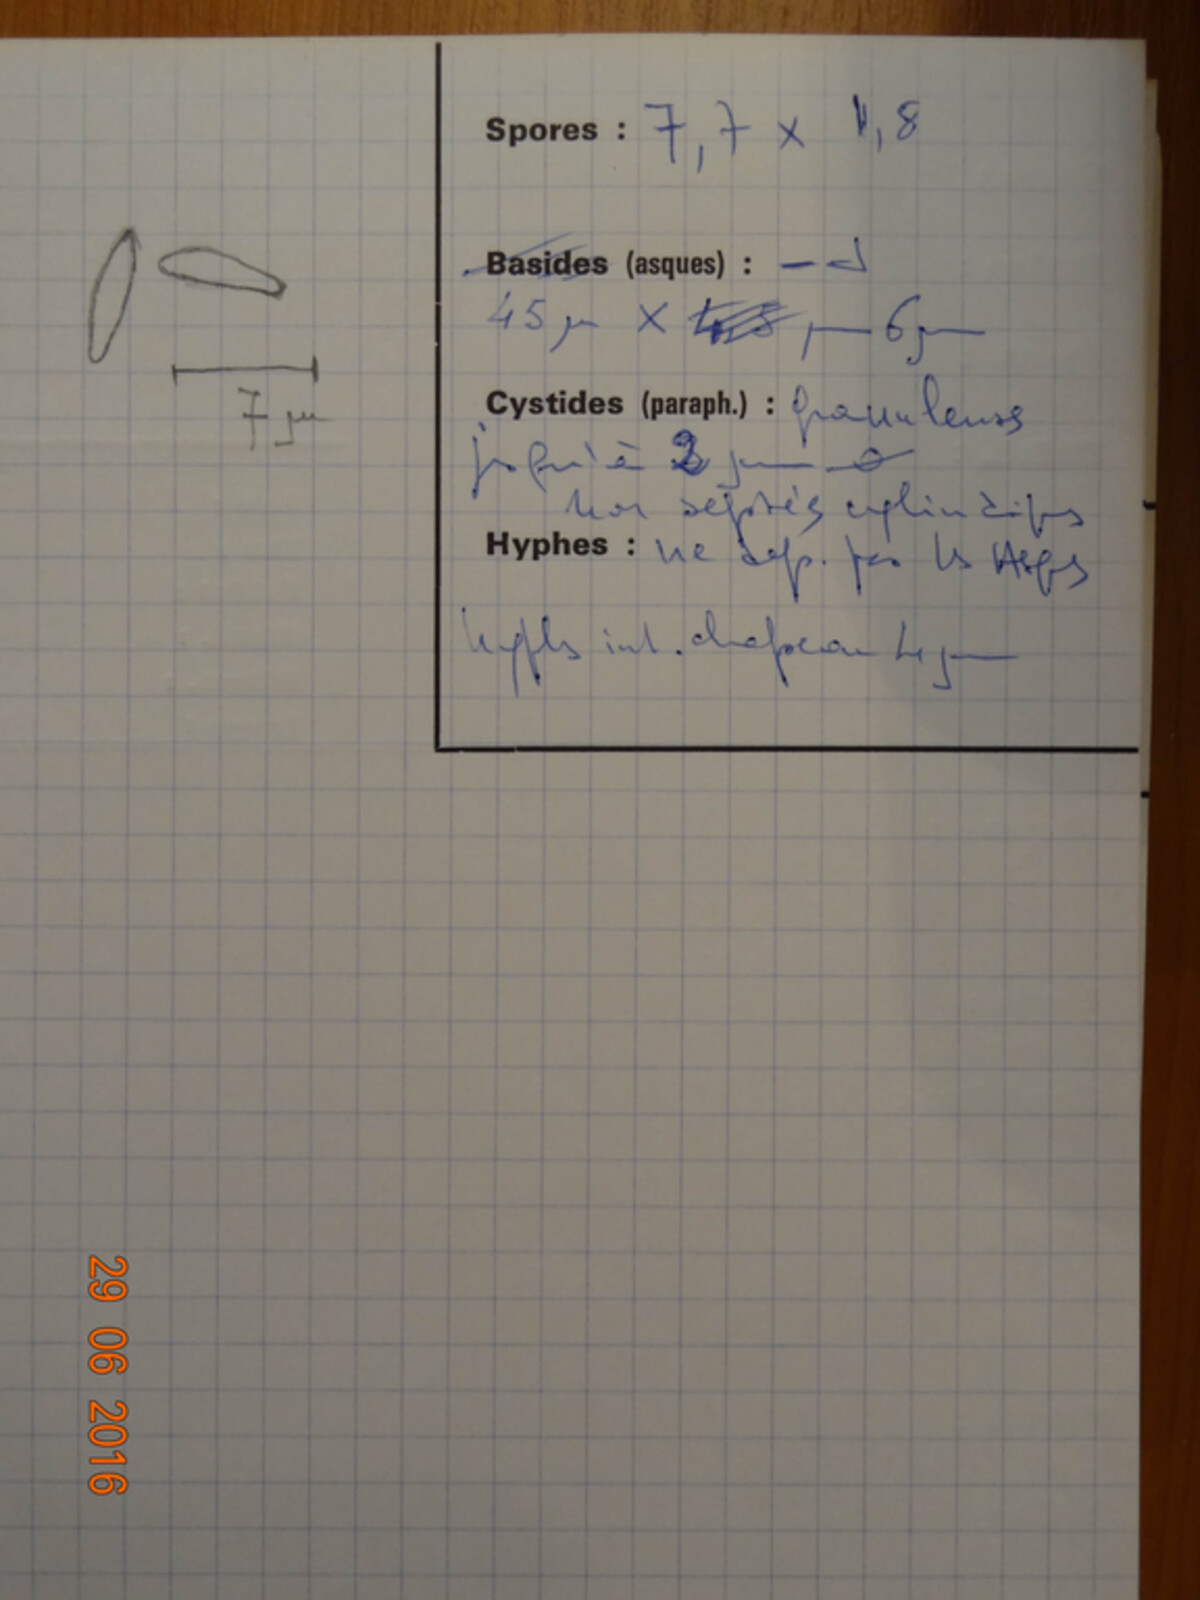 Spores : 7,7 x 1,8
Basides (asques) :
45 µm x 6 µm
Cystides (paraph.) : granuleuses
jusqu'à 2 µm
non septés cylindriques
Hyphes : ne dép. pas les Asques
hyphes int. chapeau 4 µm
7 µm
29 06 2016